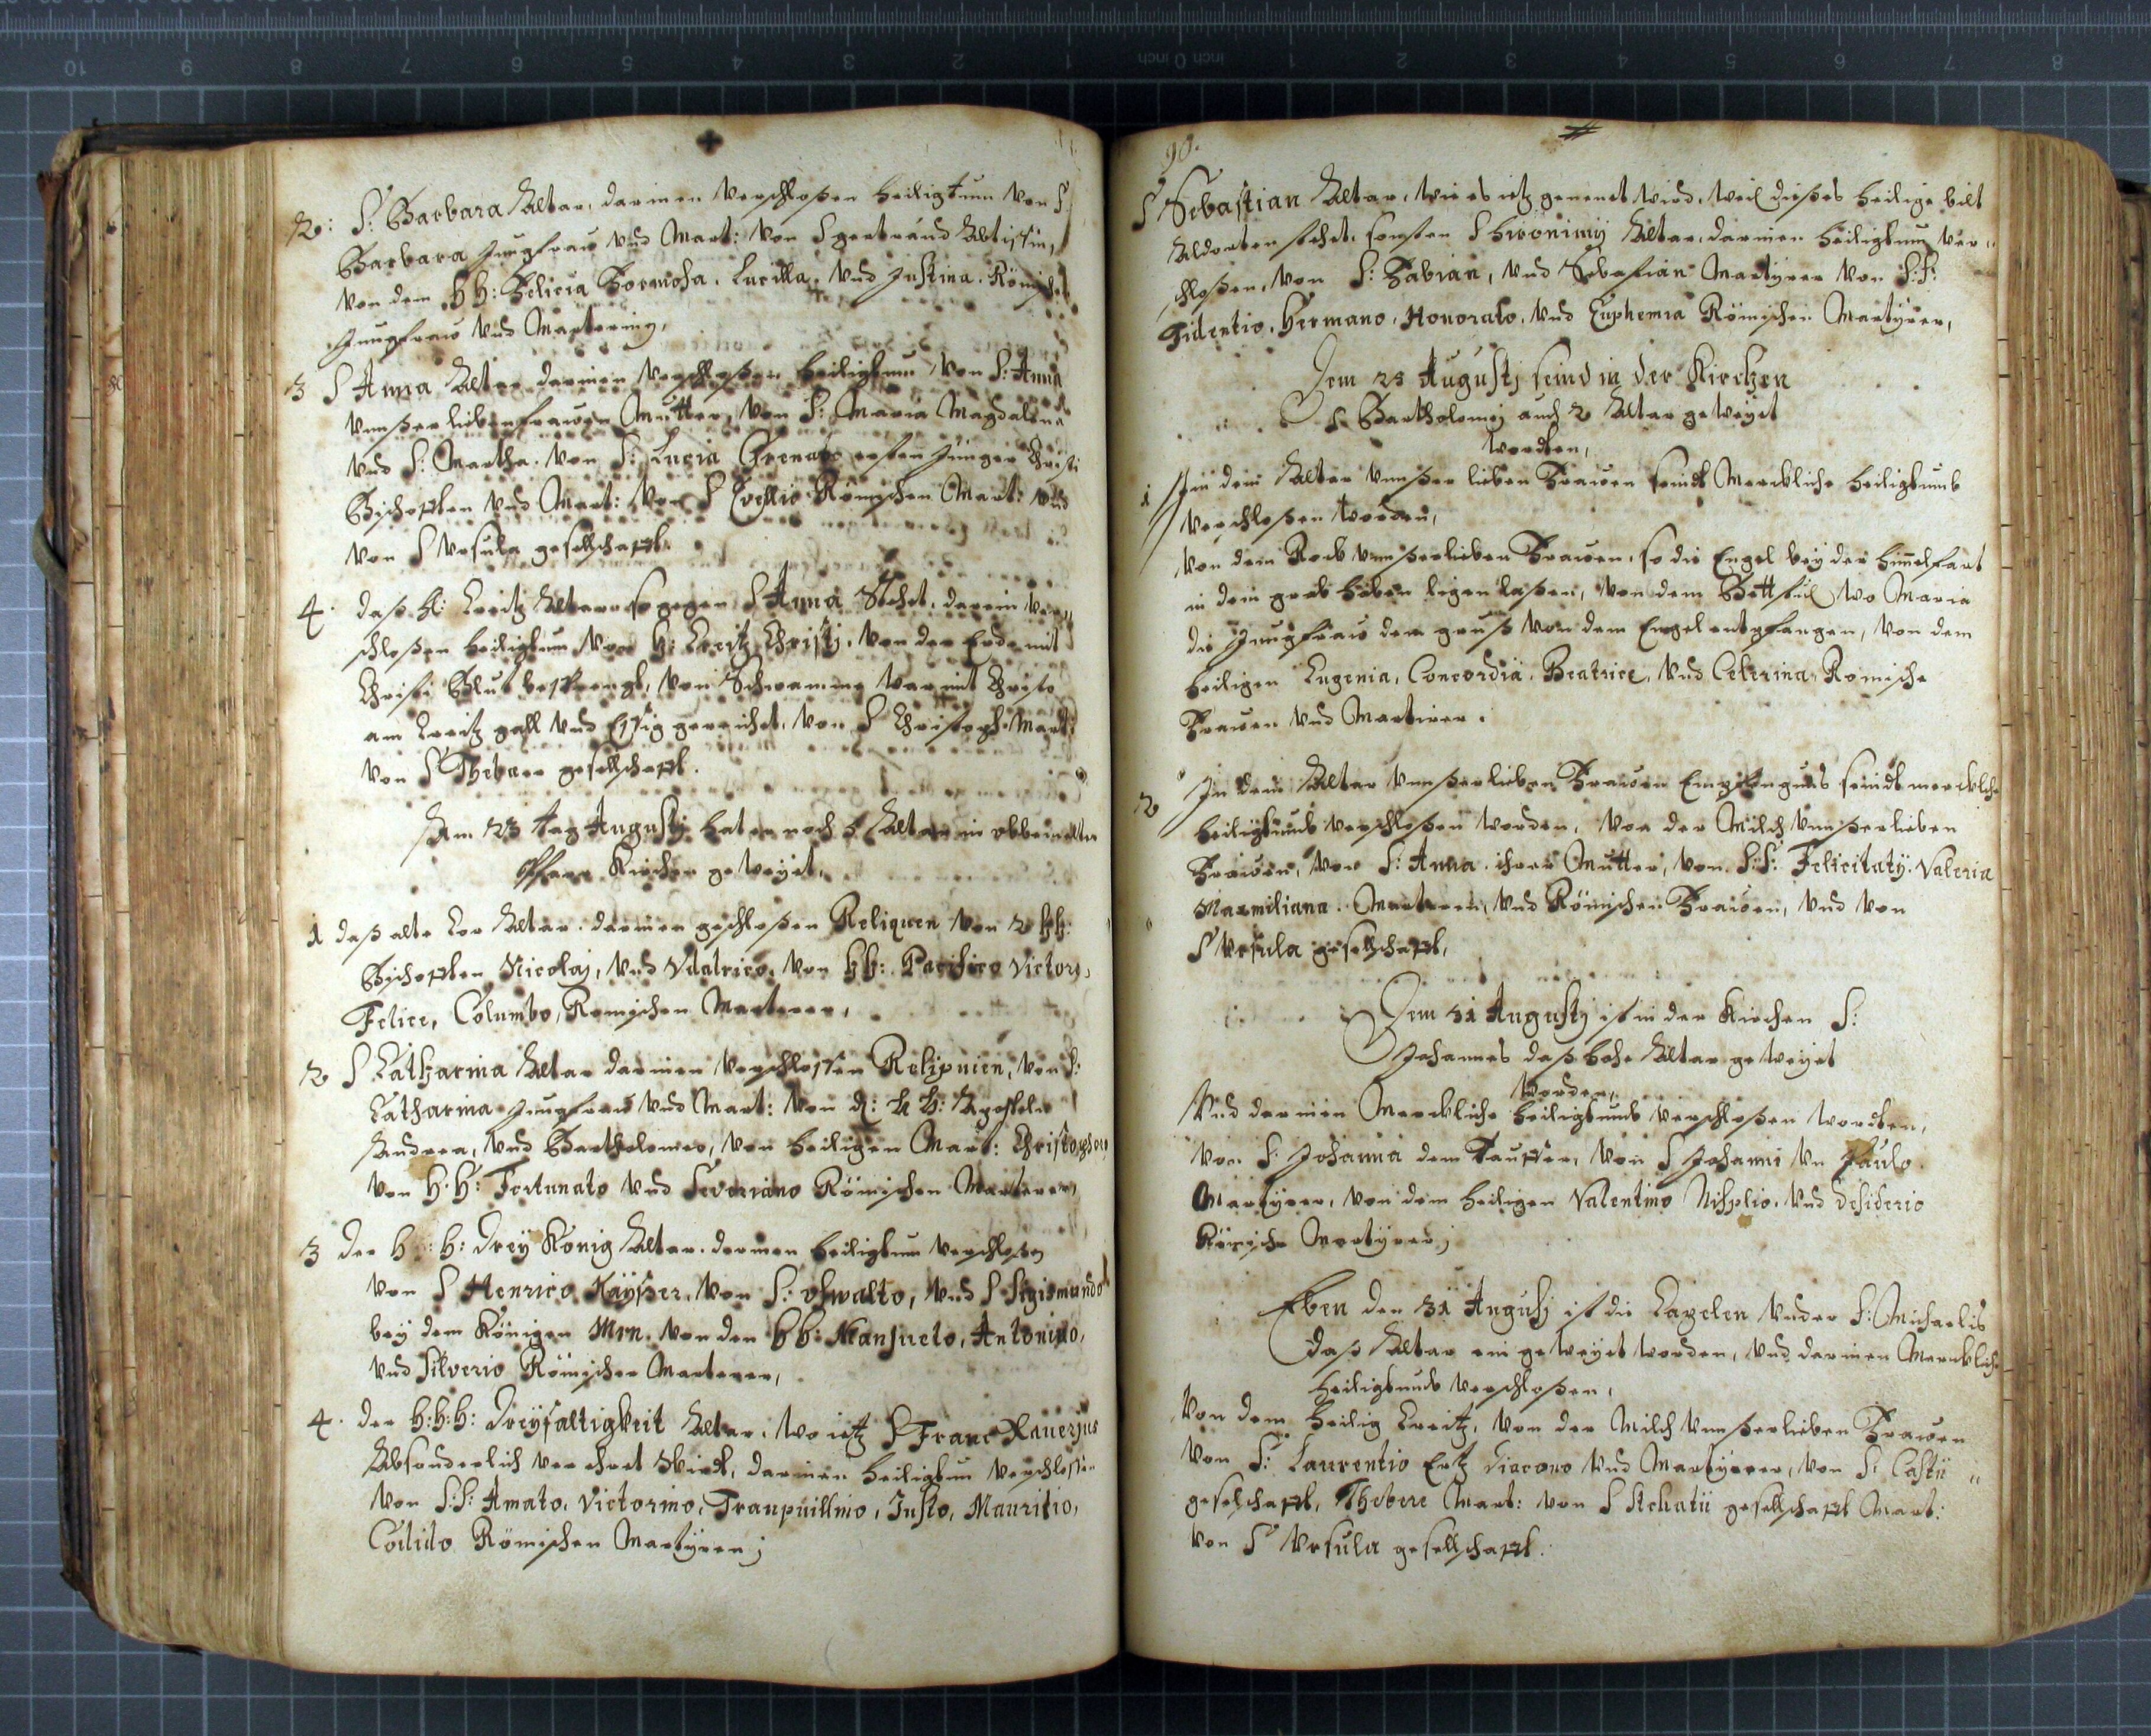 2: S: Barbara Altar, darinen verschloßen heiligtum von S.
Barbara Jungfraw und Mart: von S gertraud Abtissin,
von dem HH: Felicia Formosa, Lucilla, und Justina, Römischen
Jungfraw und Marterin,
3 S Anna Altar darinen verschloßen heiligtum, von S: Anna
unser lieben frawen Mutter, von S: Maria Magdalena
und S: Martha, von S: Lucia ersten Jünger Christi
Bischoffen und Mart: von S Römischen Mart: und
von S Ursula geselschafft.
4. daß H: Creitz Altar so gegen S Anna Stehet, darein ver„
schloßen heiligtum von H: Creitz Christj, von der Erde mit
Christi Blut besprengt, von Schwamme war mit Christo
am Creitz gall und Essig gereichet, von S Christoph Mart:
von S Thebaer geselschafft.
Am 23 tag Augustj hat er noch 4 Altar in obbemelter
Pfarr Kirchen geweyet,
1 daß alte Cor Altar. darinen geschloßen Reliquien von 2 HH:
Bischoffen Nicolaj, und Udalrico, von HH: Pacifico Victore,
Felice, Columbo, Romischen Marterer,
2 S. Catharina Altar darinen verschlossen Reliquien, von S:
Catharina Jungfraw und Mart: von d: H H: Apostele
Andrea, und Bartholomeo, von heiligen Mart: Christophoro
von H.H: Fortunato und Severiano Römischen Marterer,
3 Der H: H: Drey König Altar. darinen heiligtum verschloßen
von S Henrico Kayßer, von S: Oswalto, und S Sigismundo
bey dem Königen Mrn. von den HH: Mansueto, Antonino,
und Silverio Römischer Marterer,
4. Der H:H:H: Dreyfaltigkeit Altar, wo ietz S Franc Xaverjus
Absonderlich verehret wird, darinen heiligtum verschlossen
von S:S: Amato, Victorino, Tranquillino, Justo, Mauritio,
Römischen Martyren;
90.
S Sebastian Altar, wie es ietz genenet wird, weil dießes heilige bilt
Aldorten stehet, sonsten S Hieronimj Altar, darinen heiligtum ver„
schloßen, von S: Fabian, und Sebastian Martyrer von S:S:
Fidentio, Hermano, Honorato, und Euphemia Römischen Martyrer,
Dem 25 Augustj seind in der Kirchen
S Bartholomej auch 2 Altar geweyet
worden,
1 In dem Altar unßer lieben Frawen seindt Merckliche heiligtumb
verschloßen worden,
von dem Rock unßerlieben Frawen, so die Engel bey der himelfart
in dem grab haben ligen laßen, von dem Bettstul wo Maria
die Jungfraw den gruß von dem Engel entpfangen, von dem
heiligen Eugenia, Concordia, Beatrice, und Celerina, Romische
Frawen und Martirer.
2 In dem Altar unßerlieben Frawen Empfengnus seindt merckliche
heiligtumb verschloßen worden, von der Milch unßerlieben
Frawen, von S: Anna ihrer Mutter, von S:S: Felicitaty. Valeria
Maxmiliana. Martyren, und Römischen Frawen, und von
S Ursula geselschafft,
Dem 31 Augustj ist in der Kirchen S:
Johannes daß hohe Altar geweyet
worden,
Und darinen Merckliche heiligtumb verschloßen worden,
von S: Johanna dem Tauffer, von S Johanni un Paulo
Martyrer, von dem heiligen Valentino und Desiderio
Römische Martyrer;
Eben den 31 Augustj ist die Capelen under S: Michaelis
Daß Altar ein geweyet worden, und darinen Merckliche
heiligtumb verschloßen,
von dem heilig Creitz, von der Milch unßerlieben Frawen
von S: Laurentio Ertz Diacono und Martyrer, von S: Castii „
geselschafft, Thebere Mart: von S Achatii geselschafft Mart:
von S Ursula geselschafft.